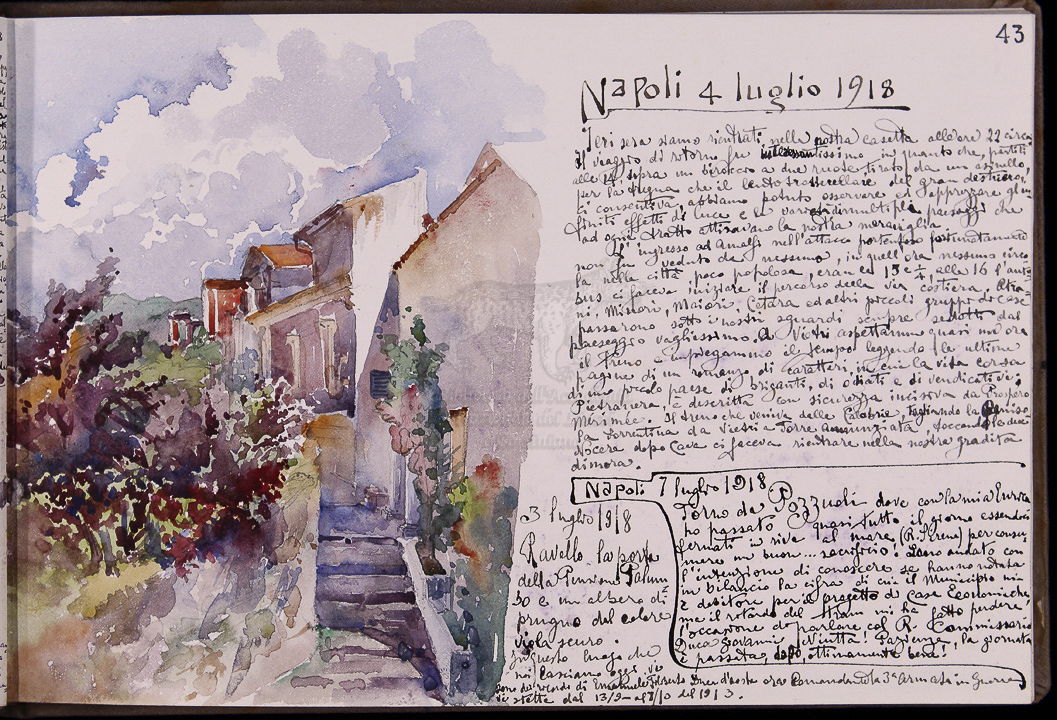 43
Napoli 4 luglio 1918
Ieri sera siamo rientrati nella nostra casetta alle ore 22 circa
Il viaggio di ritorno fu in quanto che, partiti
alle 14, sopra un biroccio a due ruote, tirato da un asinello,
per la che il lento trotterellare del gran destriero,
ci consentiva, abbiamo potuto osservare ed apprezzare gl'in
finiti effetti di luce e paesaggi che
ad ogni tratto attiravano la nostra meraviglia.
L'ingresso ad Amalfi nell'attacco portentoso fortunatamente
non fu veduto da nessuno, in quell'ora nessuno circo
la nella città poco popolosa, erano le 15 e ½, alle 16 l'auto
bus ci faceva iniziare il percorso della via costiera. Atra
ni, Minori, Maiori, Cetara ed altri piccoli gruppi di case
passarono sotto i nostri sguardi sempre sedotti dal
paesaggio vaghissimo. A Vietri aspettammo quasi un'ora
il treno impiegammo il tempo leggendo le ultime
pagine di un romanzo di caratteri, in cui la vita corsa
di un piccolo paese di briganti, di odiati e di vendicativi,
Pietranera, è descritta con sicurezza incisiva da Prospero
Merimée. Il treno che veniva dalle Calabrie, tagliando la Peniso
la Sorrentina da Vietri a Torre Annunziata, toccando le due
Nocera dopo Cava ci faceva rientrare nella nostra gradita
dimora.
Napoli 7 luglio 1918
Torno da Pozzuoli dove con la mia Enrica
ho passato quasi tutto il giorno essendoci
fermati in riva al mare per consu
mare un buon... sacrificio! Siamo andato con
l'intenzione di conoscere se hanno notata
in bilancio la cifra di cui il Municipio mi
è debitore per il progetto di Case Economiche,
ma il ritardo del tram mi ha fatto perdere,
l'occasione di parlare col R. Commissario
Duca Giovanni Pazienza, la giornata
è passata, ottimamente bene!
3 luglio 1918
Ravello. la porta
della Pensione Palum
bo e un albero di
prugno del colore
viola scuro.
In questo luogo che
noi lasciamo oggi, vi
sono dei ricordi di Emanuele Filiberto Duca d'Aosta ora Comandante la 3ª Armata in Guerra
Vi stette dal 13/9 al 8/10 del 1913.